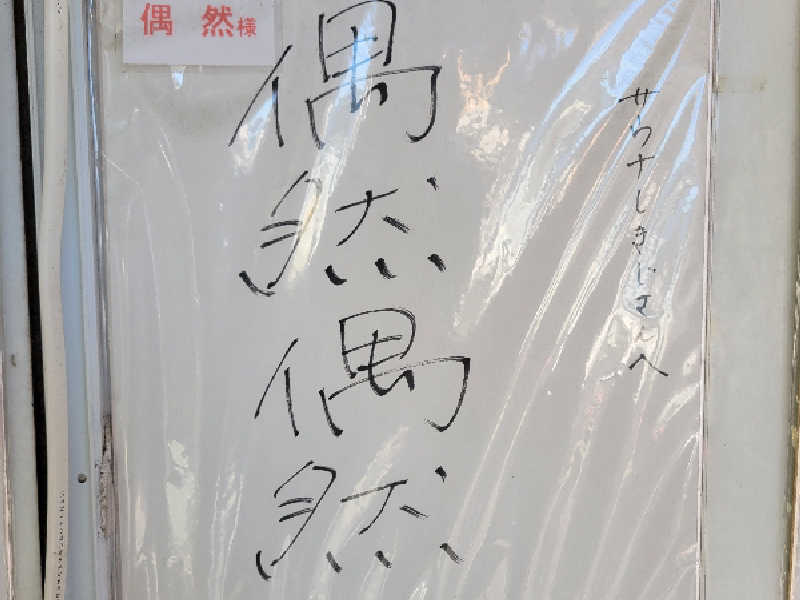 偶然様
偶然偶然
サウナしきじさんへ